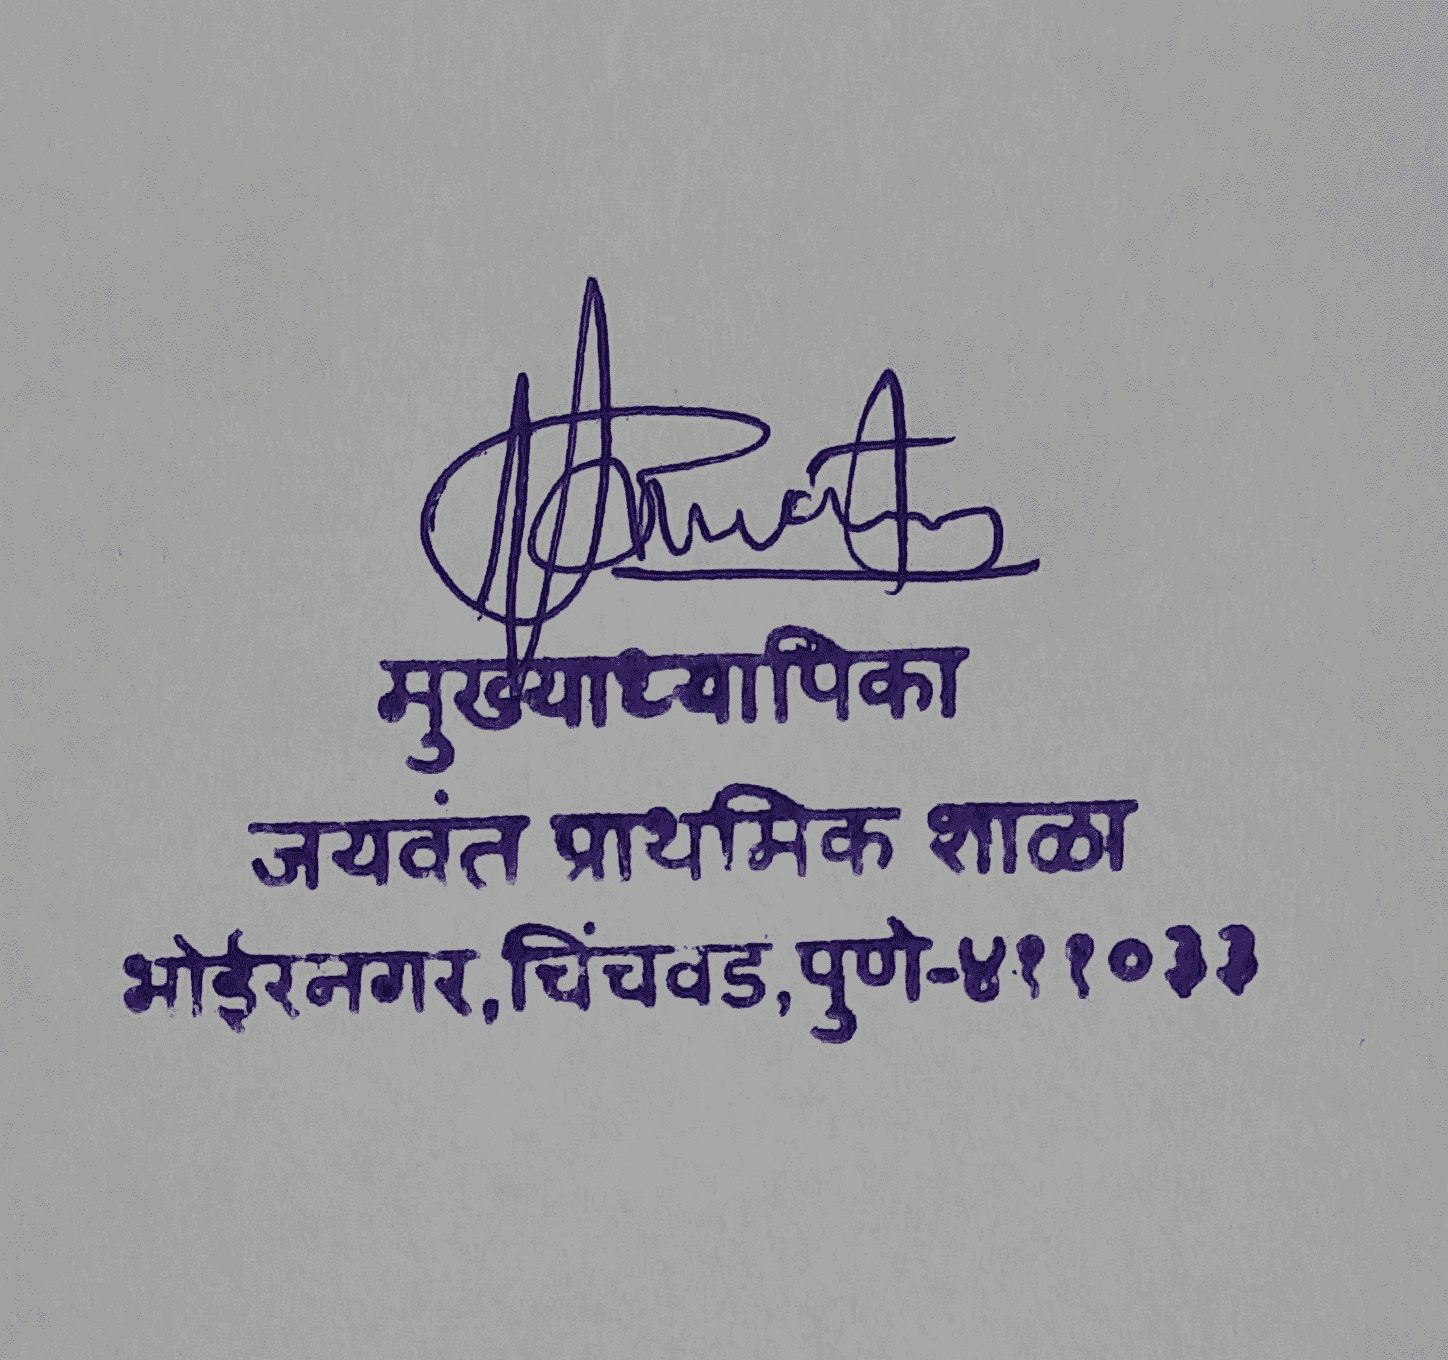 मुख्याध्यापिका
जयवंत प्राथमिक शाळा
भोईरनगर, चिंचवड, पुणे-४११०३३